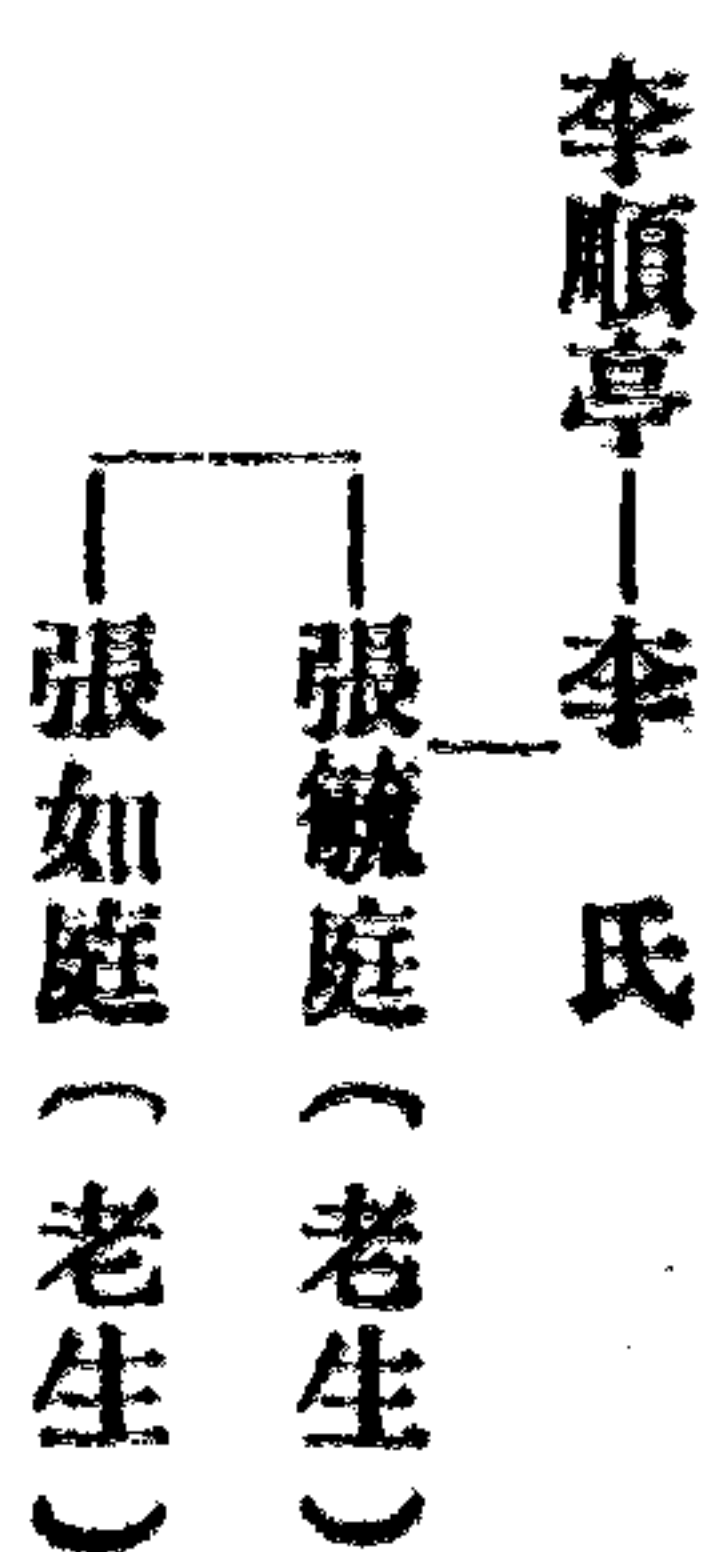 李順亭
李氏
張毓庭（老生）
張如庭（老生）